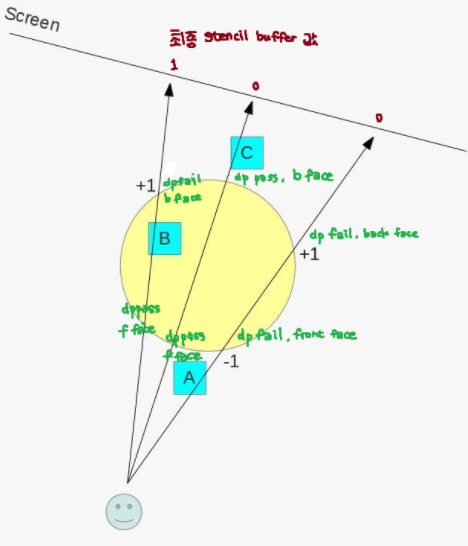 Screen
최종 stencil buffer 값
1
0
0
C
+1
dpfail
b face
dp pass, b face
B
dp fail, back face
+1
dppass
f face
dppass
f face
dp fail, front face
-1
A